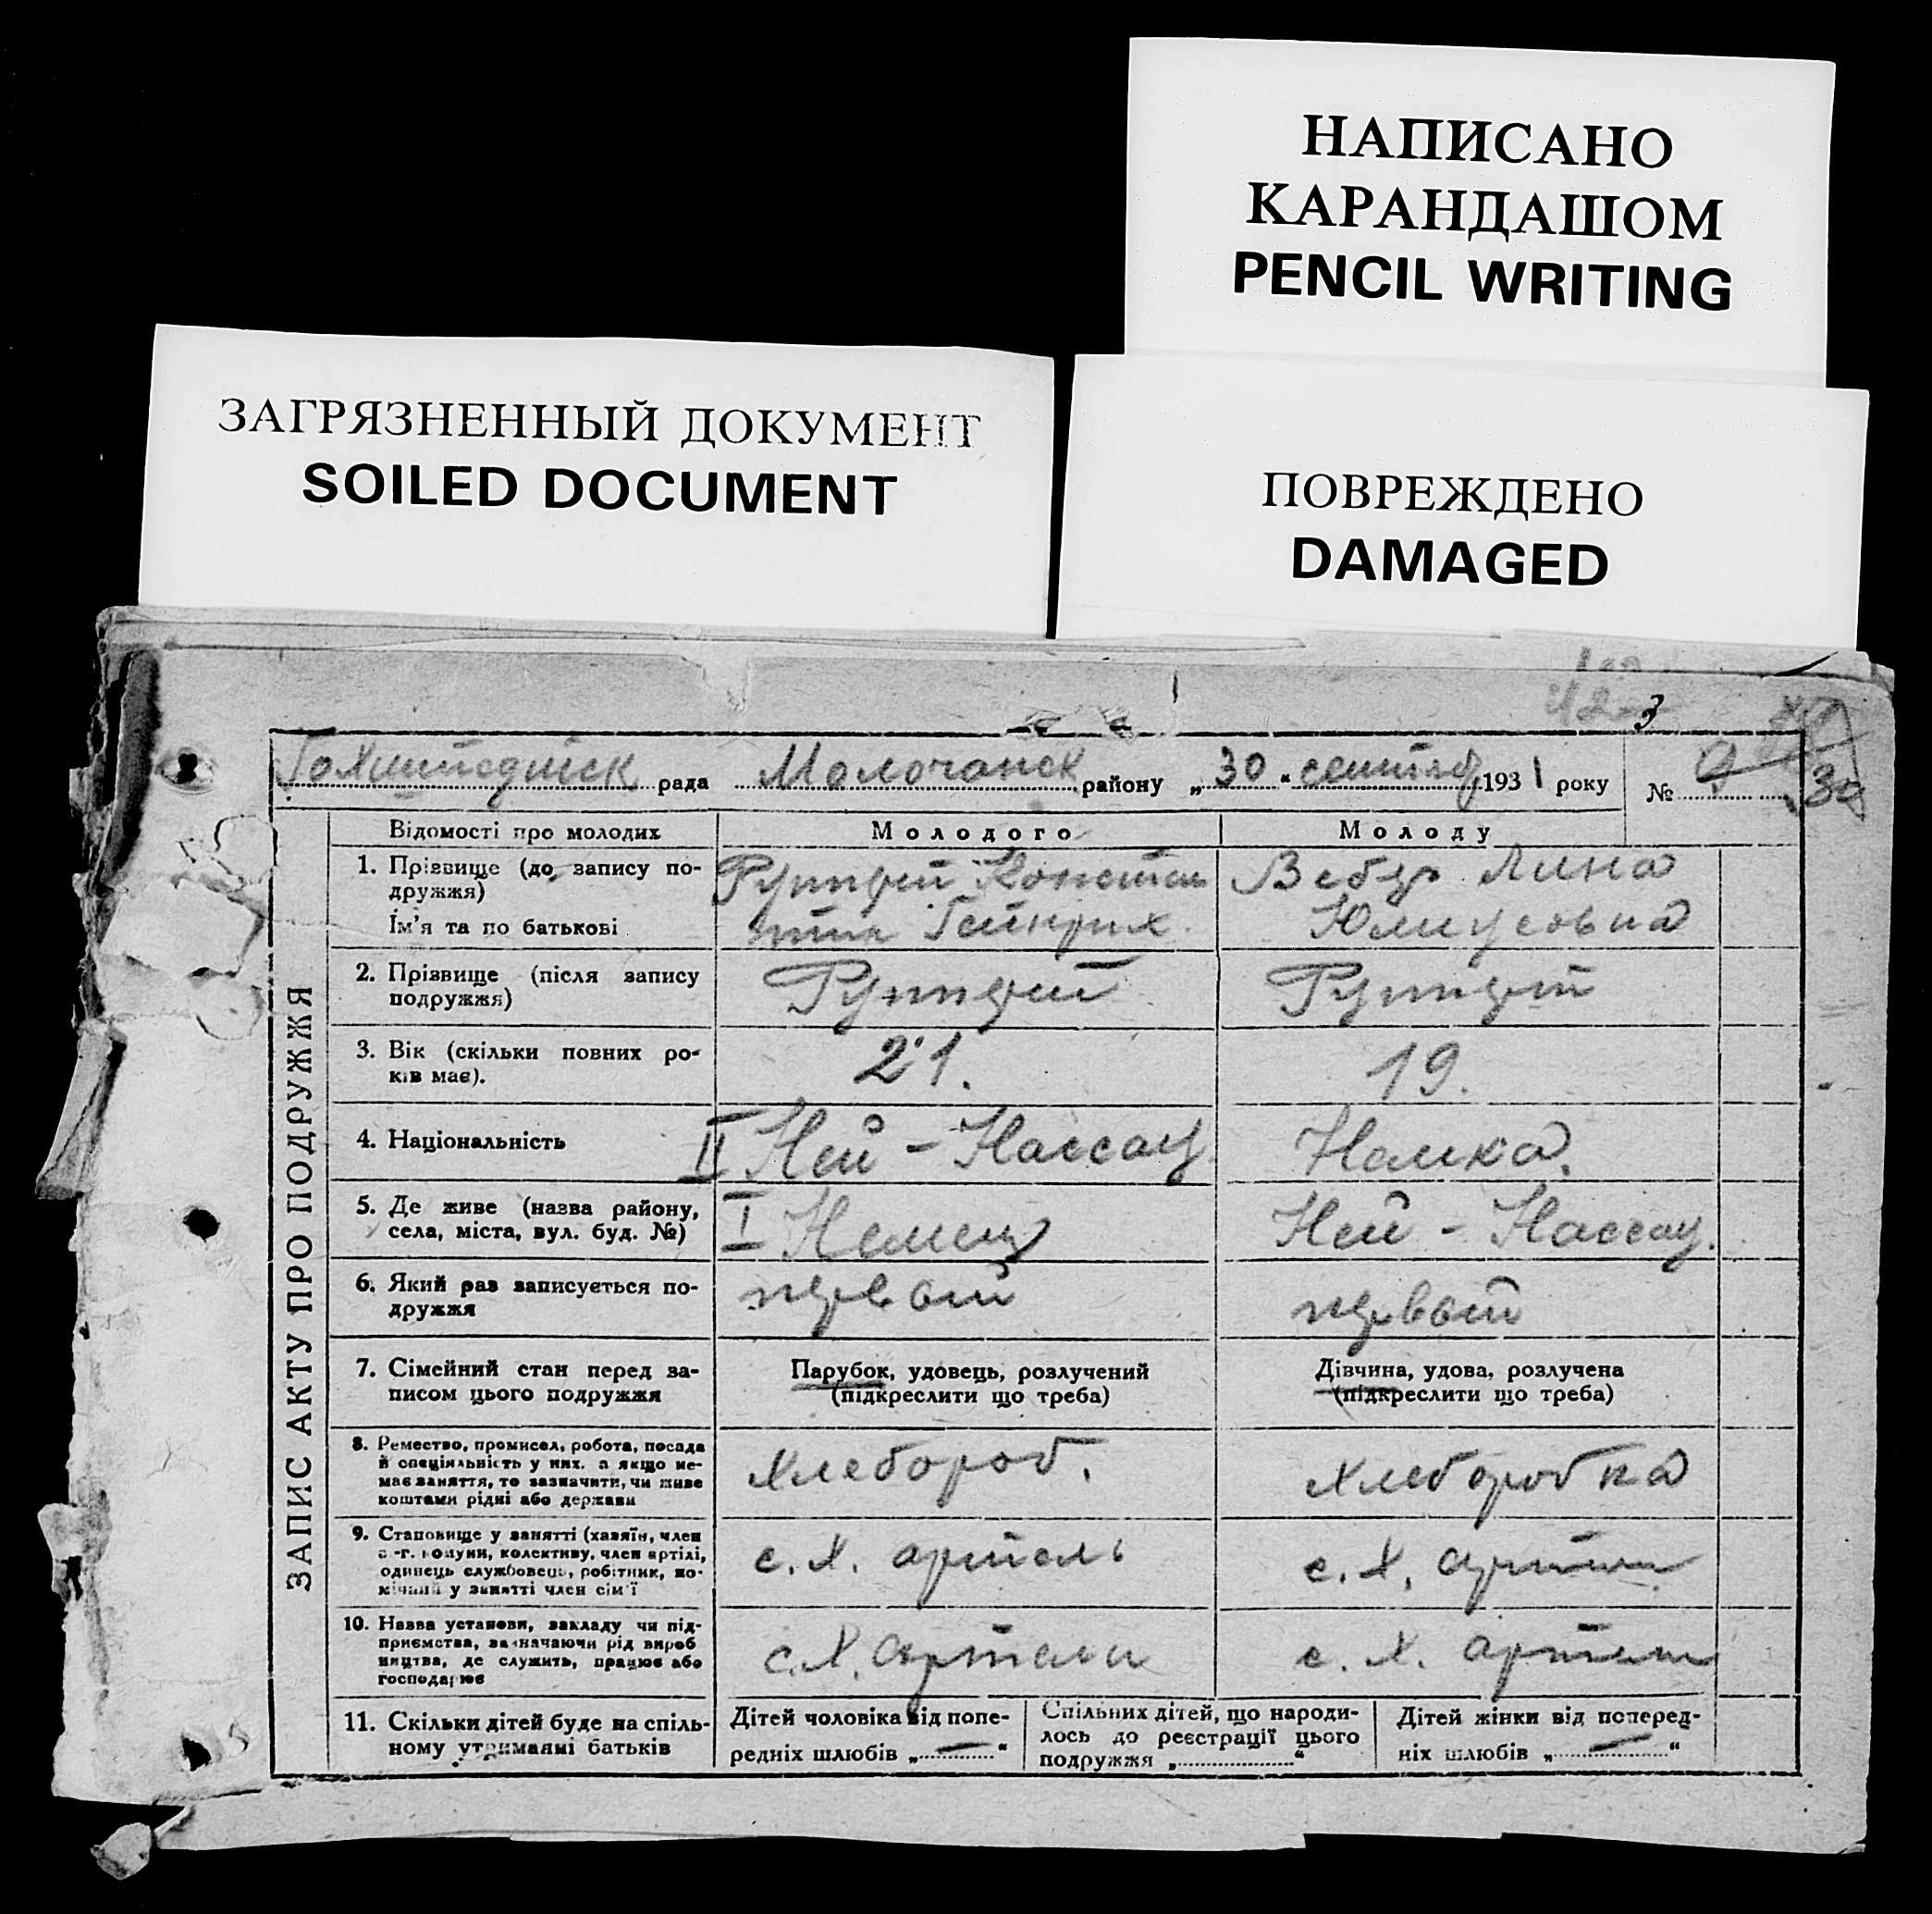 НАПИСАНО
КАРАНДАШОМ
PENCIL WRITING
ЗАГРЯЗНЕННЫЙ ДОКУМЕНТ
SOILED DOCUMENT
ПОВРЕЖДЕНО
DAMAGED
3
рада Молочанск району „30“ сентябр 1931 року № 30
Відомості про молодих
Молодого
Молоду
1. Прізвище (до запису по-
дружжя)
Ім'я та по батькові
Констан
тин Гейнрих
Вебер Лина
Юлиусовна
2. Прізвище (після запису
подружжя)
3. Вік (скільки повних ро-
ків має).
21.
19.
4. Національність
II Ней - Нассау
Немка.
5. Де живе (назва району,
села, міста, вул. буд. №)
I Немец
Ней - Нассау.
6. Який раз записується по-
дружжя
первый
первый
7. Сімейний стан перед за-
писом цього подружжя
Парубок, удовець, розлучений
(підкреслити що треба)
Дівчина, удова, розлучена
(підкреслити що треба)
8. Ремество, промисел, робота, посада
й спеціяльність у них, а якщо не-
має заняття, то зазначити, чи живе
коштами рідні або держави
Хлебороб.
Хлеборобка
9. Становище у занятті (хазяїн, член
с.-г. комуни, колективу, член артілі,
одинець службовець, робітник, по-
мічний у занятті член сім'ї
с. х. артель
с. х. артели
10. Назва установи, закладу чи під-
приємства, зазначаючи рід вироб
ництва, де служить, працює або
господарює
с. х. артели
с. х. артели
11. Скільки дітей буде на спіль-
ному утриманні батьків
Дітей чоловіка від попе-
редніх шлюбів „ — “
Спільних дітей, що народи-
лось до реєстрації цього
подружжя „ “
Дітей жінки від поперед-
ніх шлюбів „ — “
ЗАПИС АКТУ ПРО ПОДРУЖЖЯ